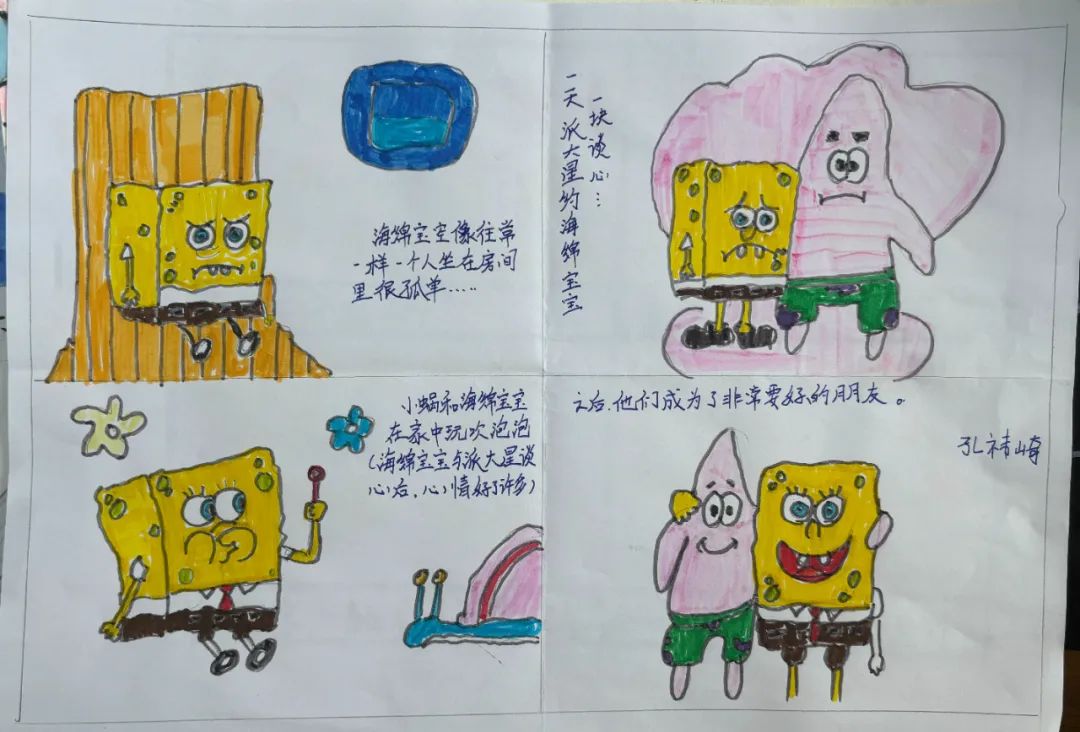 海绵宝宝像往常
一样一个人坐在房间
里很孤单.....
一天派大星约海绵宝宝
一块谈心...
小蜗和海绵宝宝
在家中玩吹泡泡
(海绵宝宝与派大星谈
心后,心情好了许多)
之后,他们成为了非常要好的朋友。